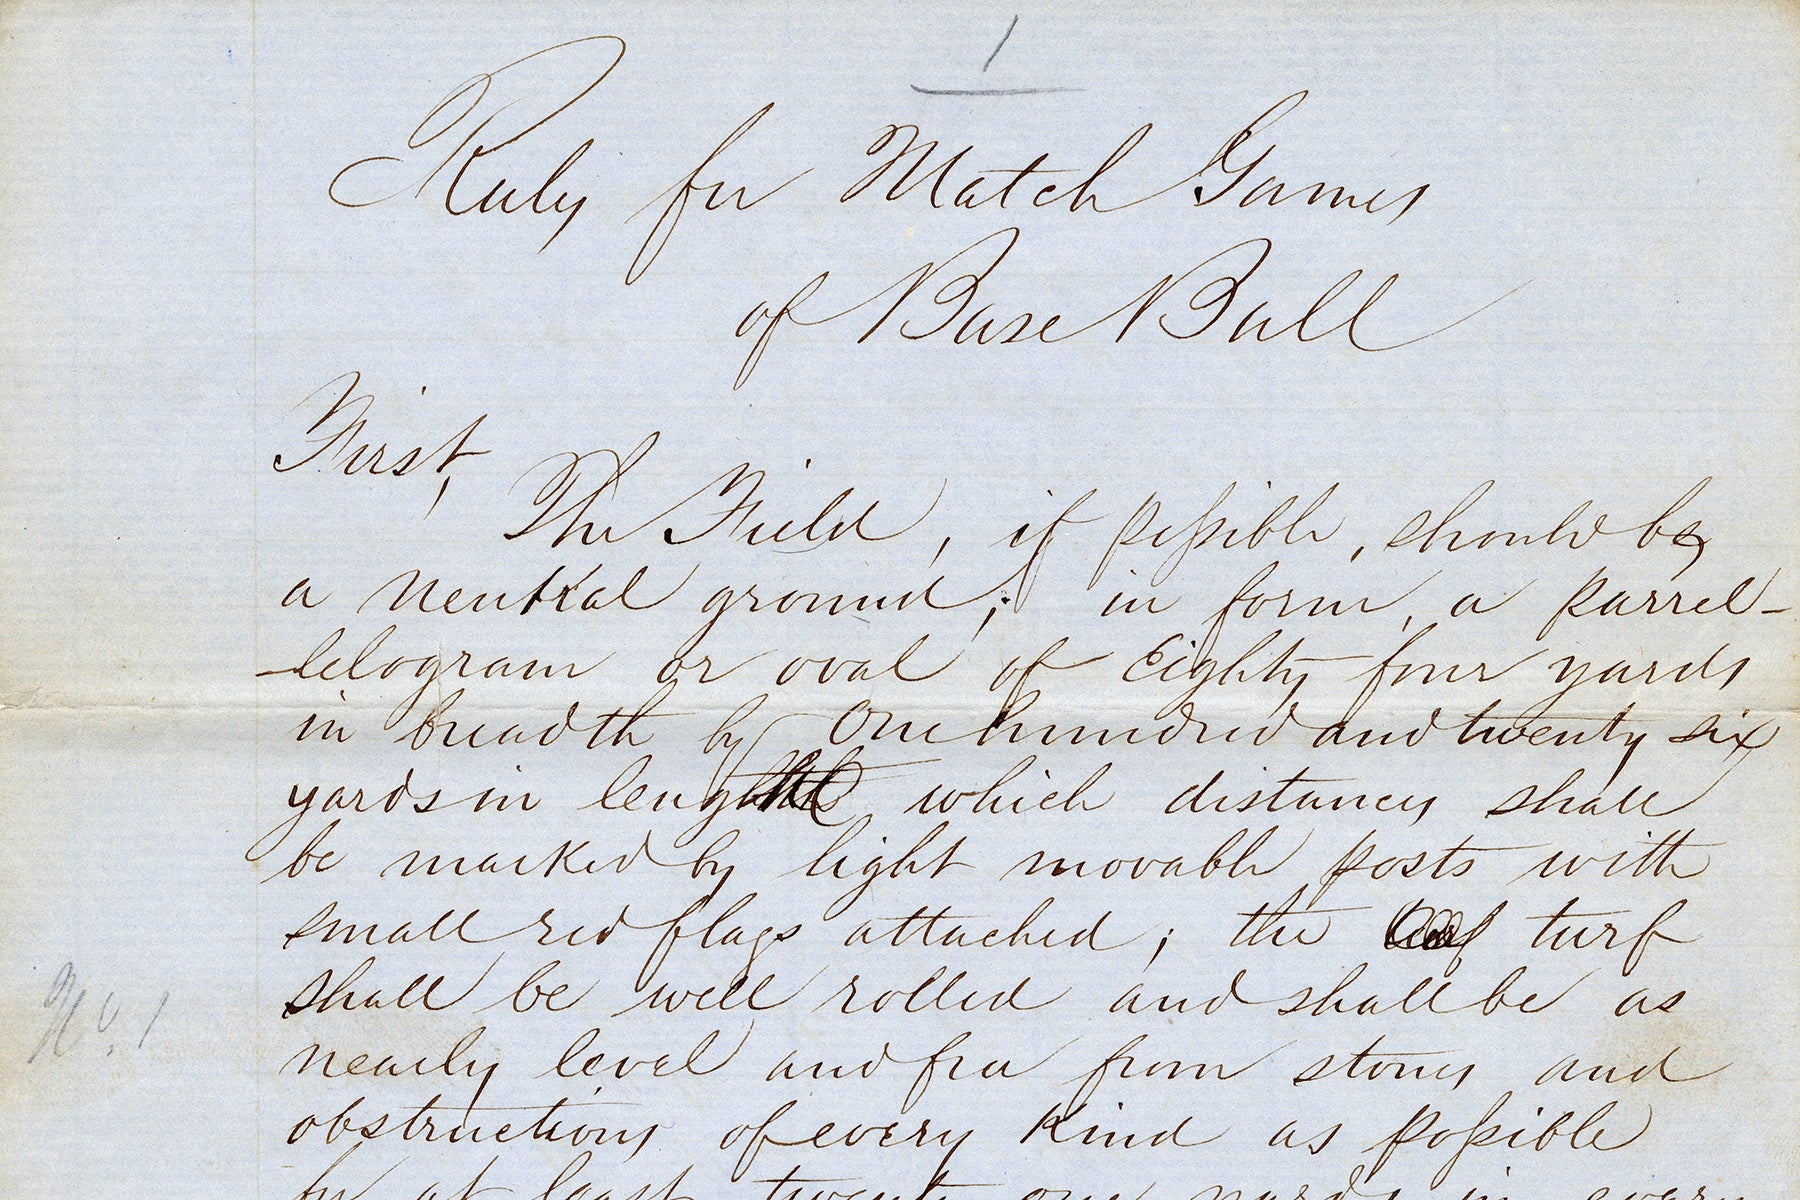 1
Rules for Match Games
of Base Ball
First,
The Field, if possible, should be
a neutral ground; in form, a parrel-
-lelogram or oval of Eighty four yards
in breadth by One hundred and twenty six
yards in length which distances shall
be marked by light movable posts with
small red flags attached; the turf
shall be well rolled and shall be as
No. 1
nearly level and free from stones and
obstructions of every kind as possible
for at least twenty one yards in every